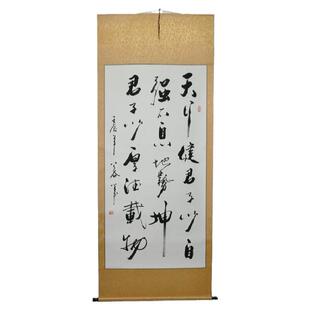 天行健君子以自
强不息地势坤
君子以厚德載物